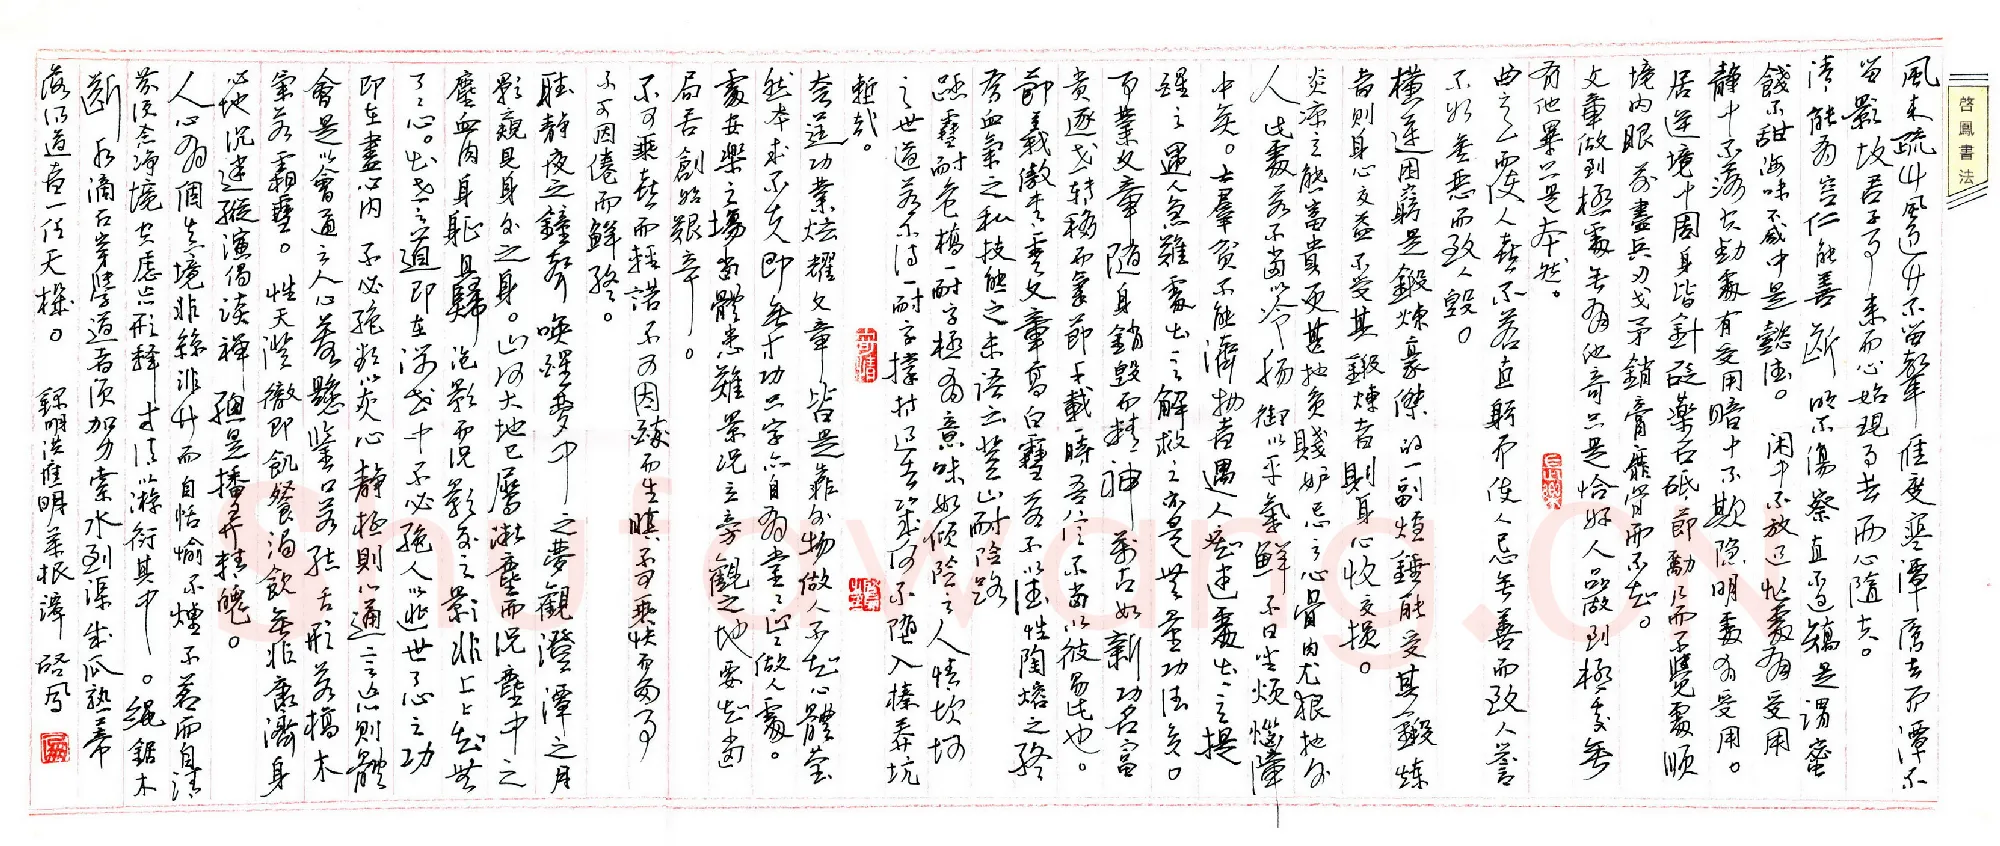 啓鳳書法
風來疏竹風過竹不留聲雁度寒潭雁去而潭不
留影故君子事來而心始現事去而心隨空。
清能有容仁能善斷明不傷察直不過矯是謂蜜
餞不甜海味不咸中是懿德。閑中不放過忙處有受用
靜中不落空動處有受用暗中不欺隐明處有受用。
居逆境中周身皆針砭藥石砥節勵行而不覺處順
境内眼前盡兵刃戈矛銷膏靡骨而不知。
文章做到極處無有他奇只是恰好人品做到極處無
有他異只是本然。
曲意而使人喜不若直躬而使人忌無善而致人譽
不如無惡而致人毀。
橫逆困窮是鍛煉豪傑的一副爐錘能受其鍛煉
者則身心交益不受其鍛煉者則身心交損。
炎凉之態富貴更甚於貧賤妒忌之心骨肉尤狠於外
人此處若不當以冷腸御以平氣鮮不日坐煩惱障
中矣。士君子貧不能濟物者遇人痴迷處出一言提
醒之遇人急難處出一言解救之亦是無量功德矣。
事業文章隨身銷毀而精神萬古如新功名富
貴逐世轉移而氣節千載一時吾信不當以彼易此也。
節義傲青雲文章高白雪若不以德性陶熔之終
爲血氣之私技能之末語云登山耐險路
踏雪耐危橋一耐字極有意味如傾險之人情坎坷
之世道若不得一耐字撑持過去幾何不墮入榛莽坑
塹哉。
夸逞功業炫耀文章皆是靠外物做人不知心體瑩
然本求不失即無寸功只字亦自有堂堂正正做人處。
處安樂之場當體患難景况立旁觀之地要知當
局者創始艱辛。
不可乘喜而輕諾不可因醉而生瞋不可乘快而多事
不可因倦而鮮終。
聽靜夜之鐘聲喚醒夢中之夢觀澄潭之月
影窺見身外之身。山河大地已屬微塵而况塵中之
塵血肉身軀且歸泡影而况影外之影非上上知無
了了心。出世之道即在涉世中不必絶人以逃世了心之功
即在盡心内不必絶欲以灰心靜極則心通言忘則體
會是以會通之人心若懸鑒口若結舌形若槁木
氣若霜雪。性天澄徹即飢餐渴飲無非康濟身
心地沉迷縱演偈談禪總是播弄精魄。
人心有個真境非絲非竹而自恬愉不煙不茗而自清
芬須念净境空慮忘形釋才得以游衍其中。繩鋸木
斷水滴石穿學道者須加力索水到渠成瓜熟蒂
落得道者一任天機。 録明洪應明菜根譚 啓鳳